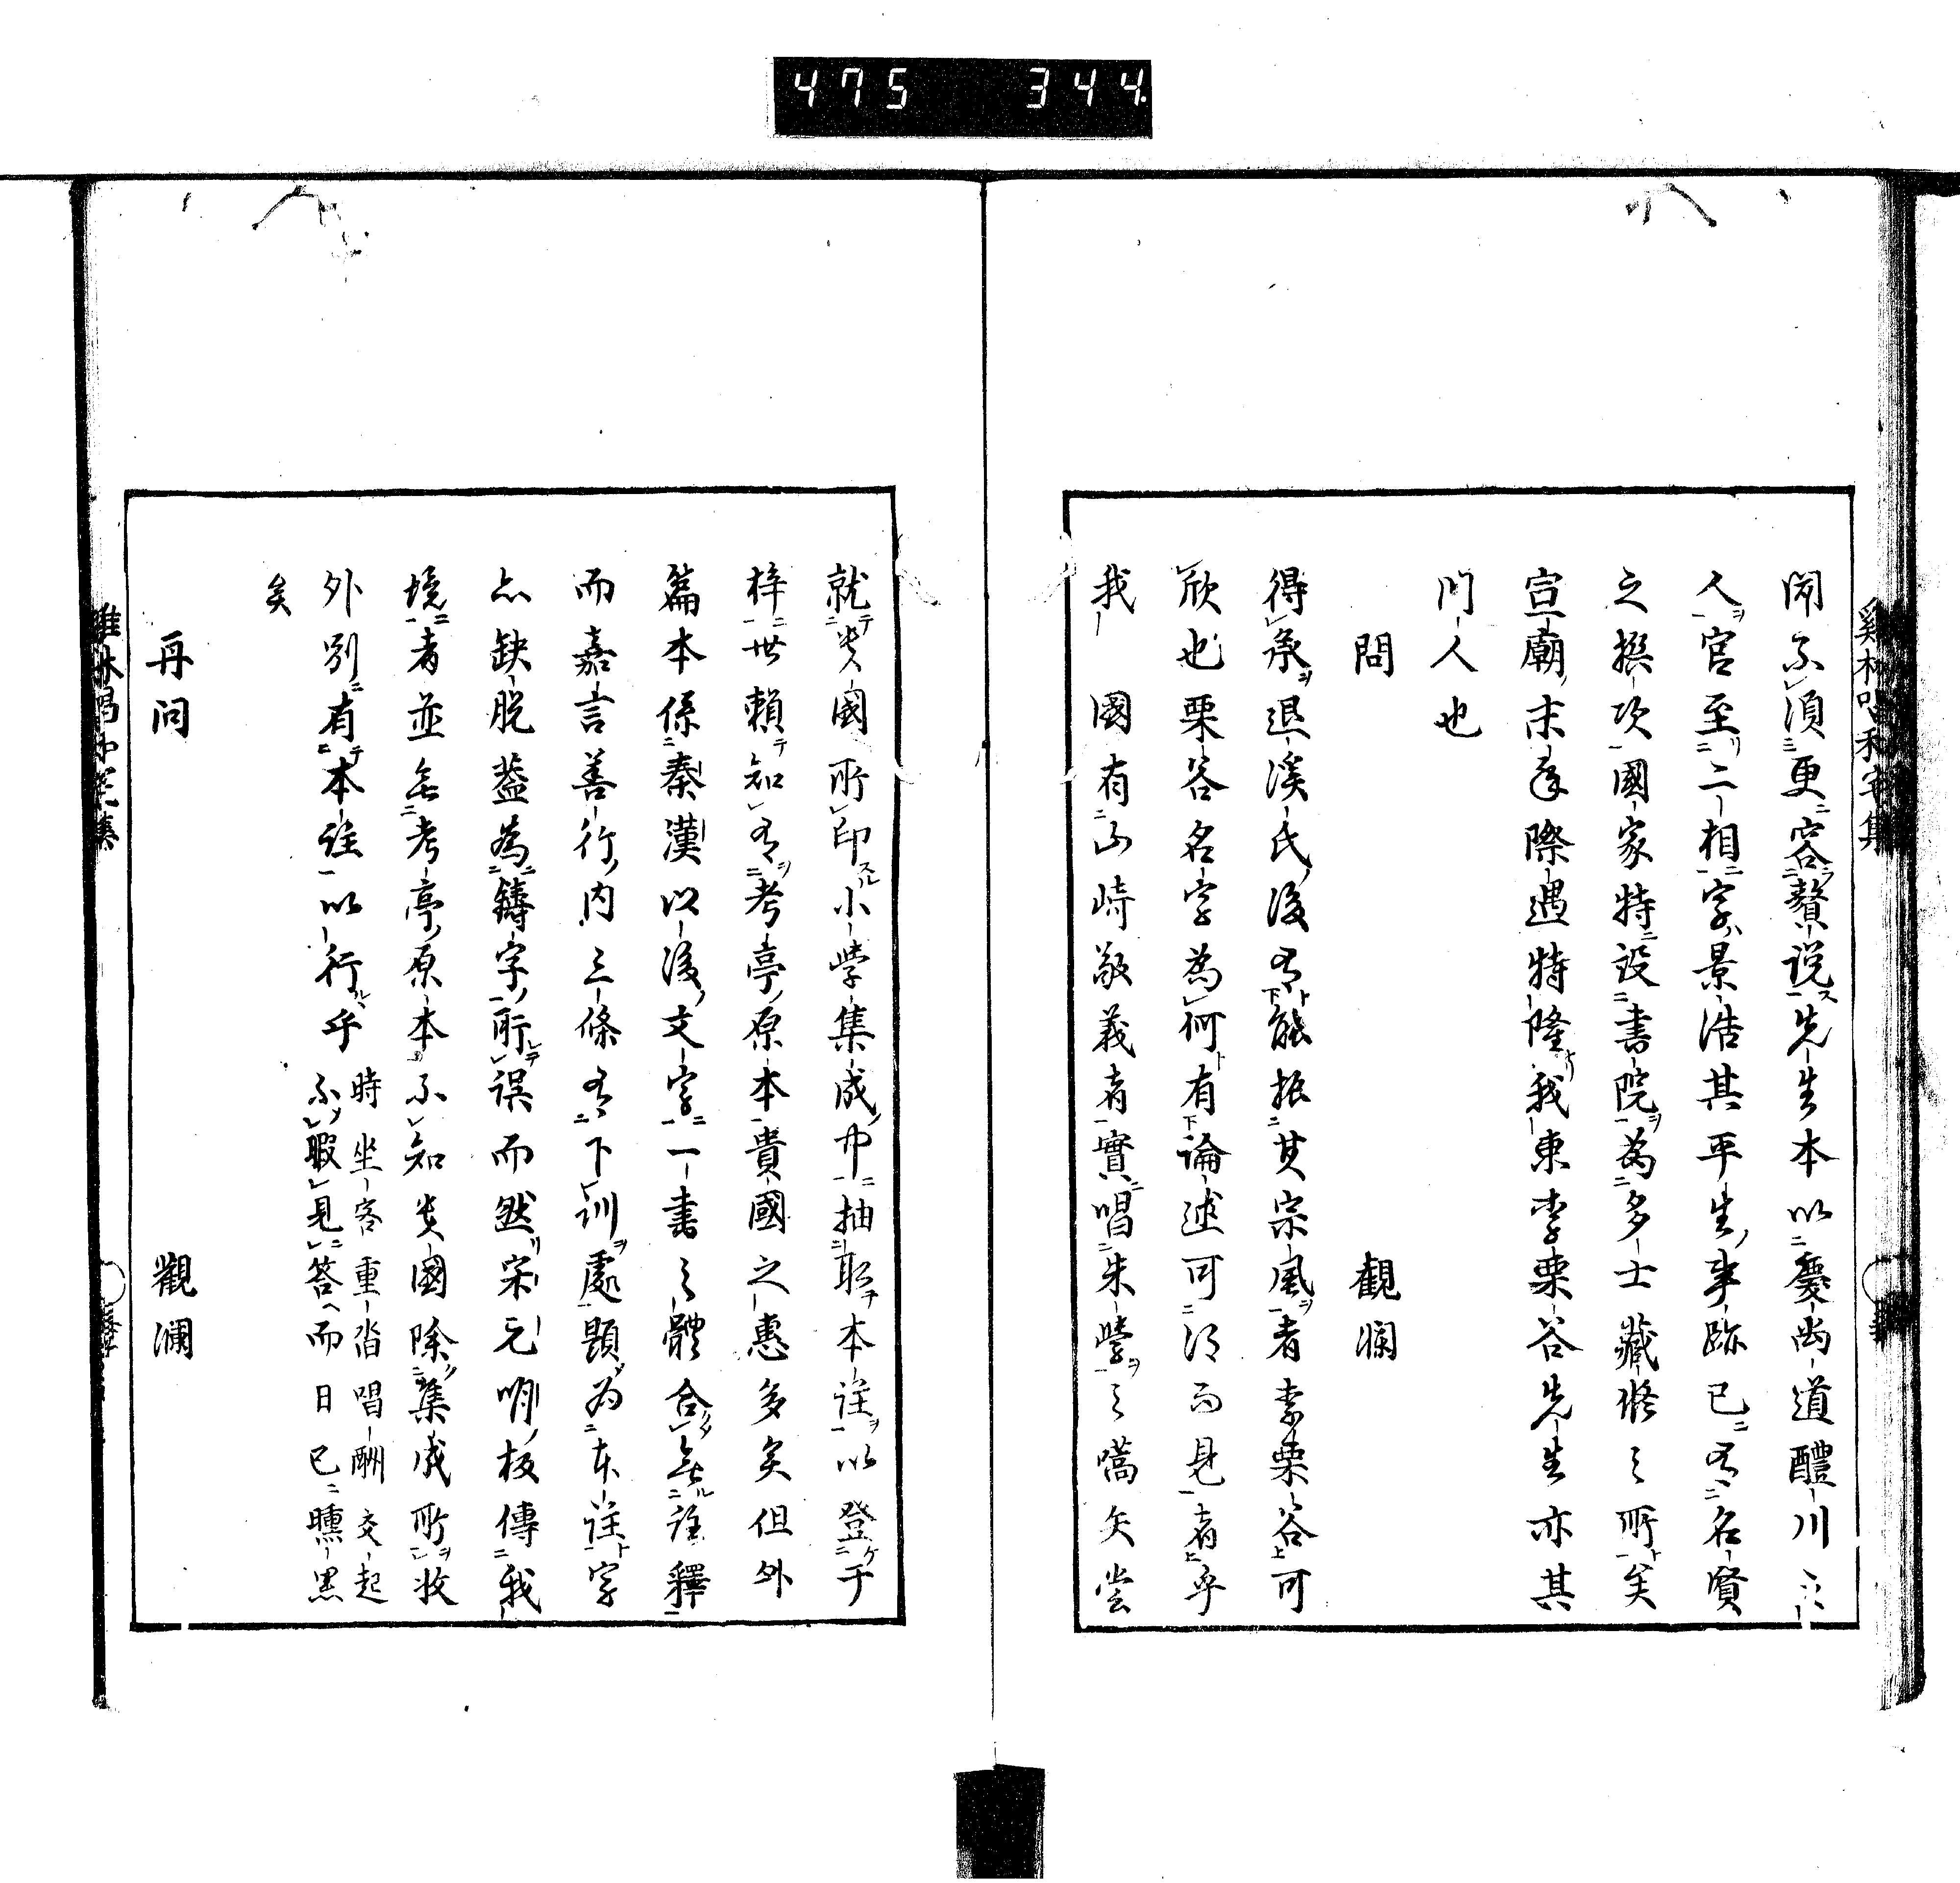 475 344
聞不須更容贅說先生本以慶尚道醴川之
人官至二相字景浩其平生事跡已有名賢
之撰次國家特設書院為多士藏修之所矣
宣廟末年際遇特隆我東李栗谷先生亦其
門人也
問 觀瀾
得承退溪氏後有能振其宗風者李栗谷可
欣也栗谷名字為何有論述可得而見者乎
我 國有山崎敬義者實唱朱學之嚆矢嘗
就貴國所印小學集成中抽取本註以登于
梓世賴知有考亭原本貴國之惠多矣但外
篇本係秦漢以後文字一書之體合無註釋
而嘉言善行內三條有下訓處題為本註字
亦缺脫蓋為鑄字所誤而然宋元明板傳我
境者並無考亭原本不知貴國除集成所收
外別有本註以行乎 時坐客重沓唱酬交起
不暇見答而日已曛黑
矣
再問 觀瀾